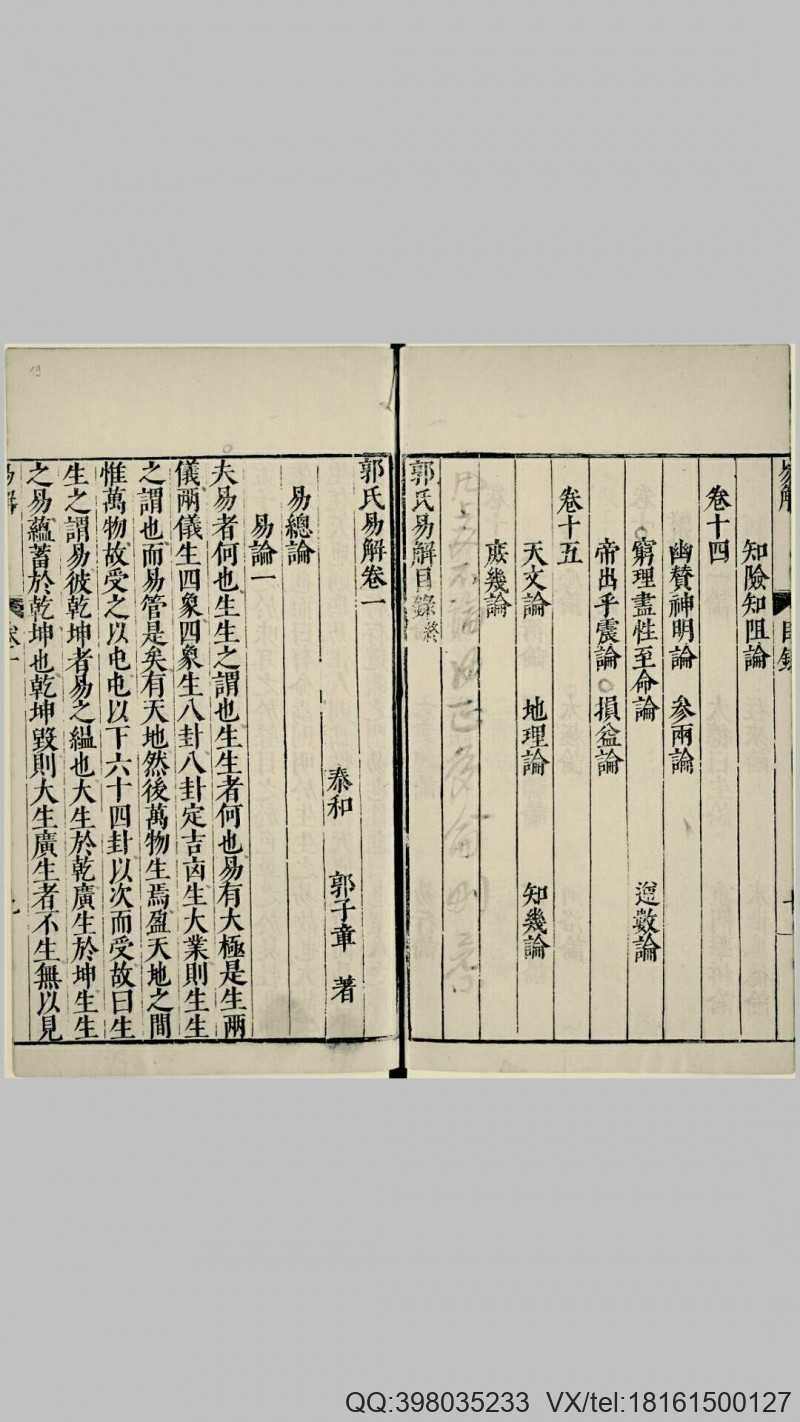 易解
目錄
知險知阻論
卷十四
幽贊神明論 參兩論
窮理盡性至命論 逆數論
帝出乎震論 損益論
卷十五
天文論 地理論 知幾論
庶幾論
郭氏易解目錄終
郭氏易解卷一
泰和 郭子章 著
易總論
易論一
夫易者何也生生之謂也生生者何也易有大極是生兩
儀兩儀生四象四象生八卦八卦定吉㐫生大業則生生
之謂也而易管是矣有天地然後萬物生焉盈天地之間
惟萬物故受之以屯屯以下六十四卦以次而受故曰生
生之謂易彼乾坤者易之緼也大生於乾廣生於坤生生
之易蘊蓄於乾坤也乾坤毀則大生廣生者不生無以見
易解
卷一
19
QQ:398035233 VX/tel:18161500127